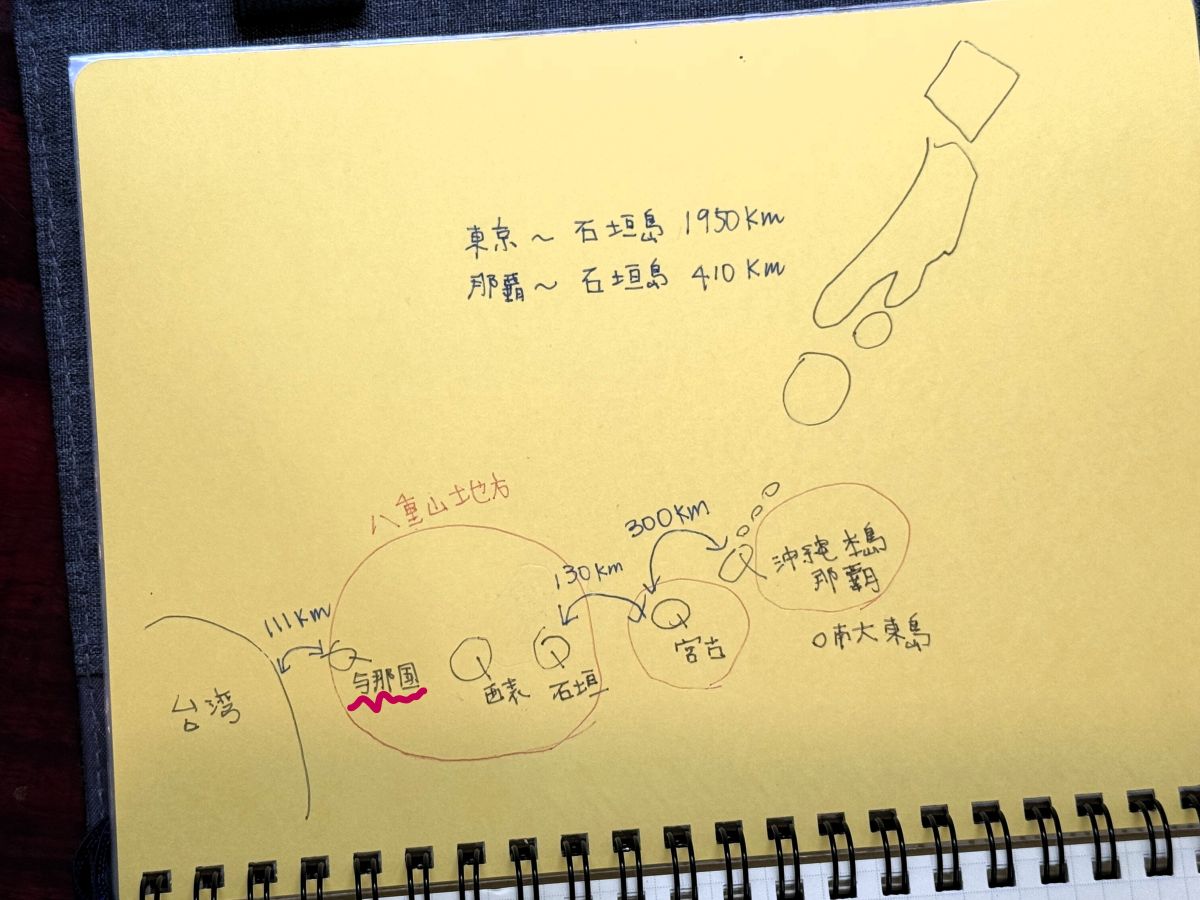 東京～石垣島 1950Km
那覇～石垣島 410Km
八重山地方
300Km
130Km
111Km
沖縄本島
那覇
宮古
南大東島
与那国
西表
石垣
台湾